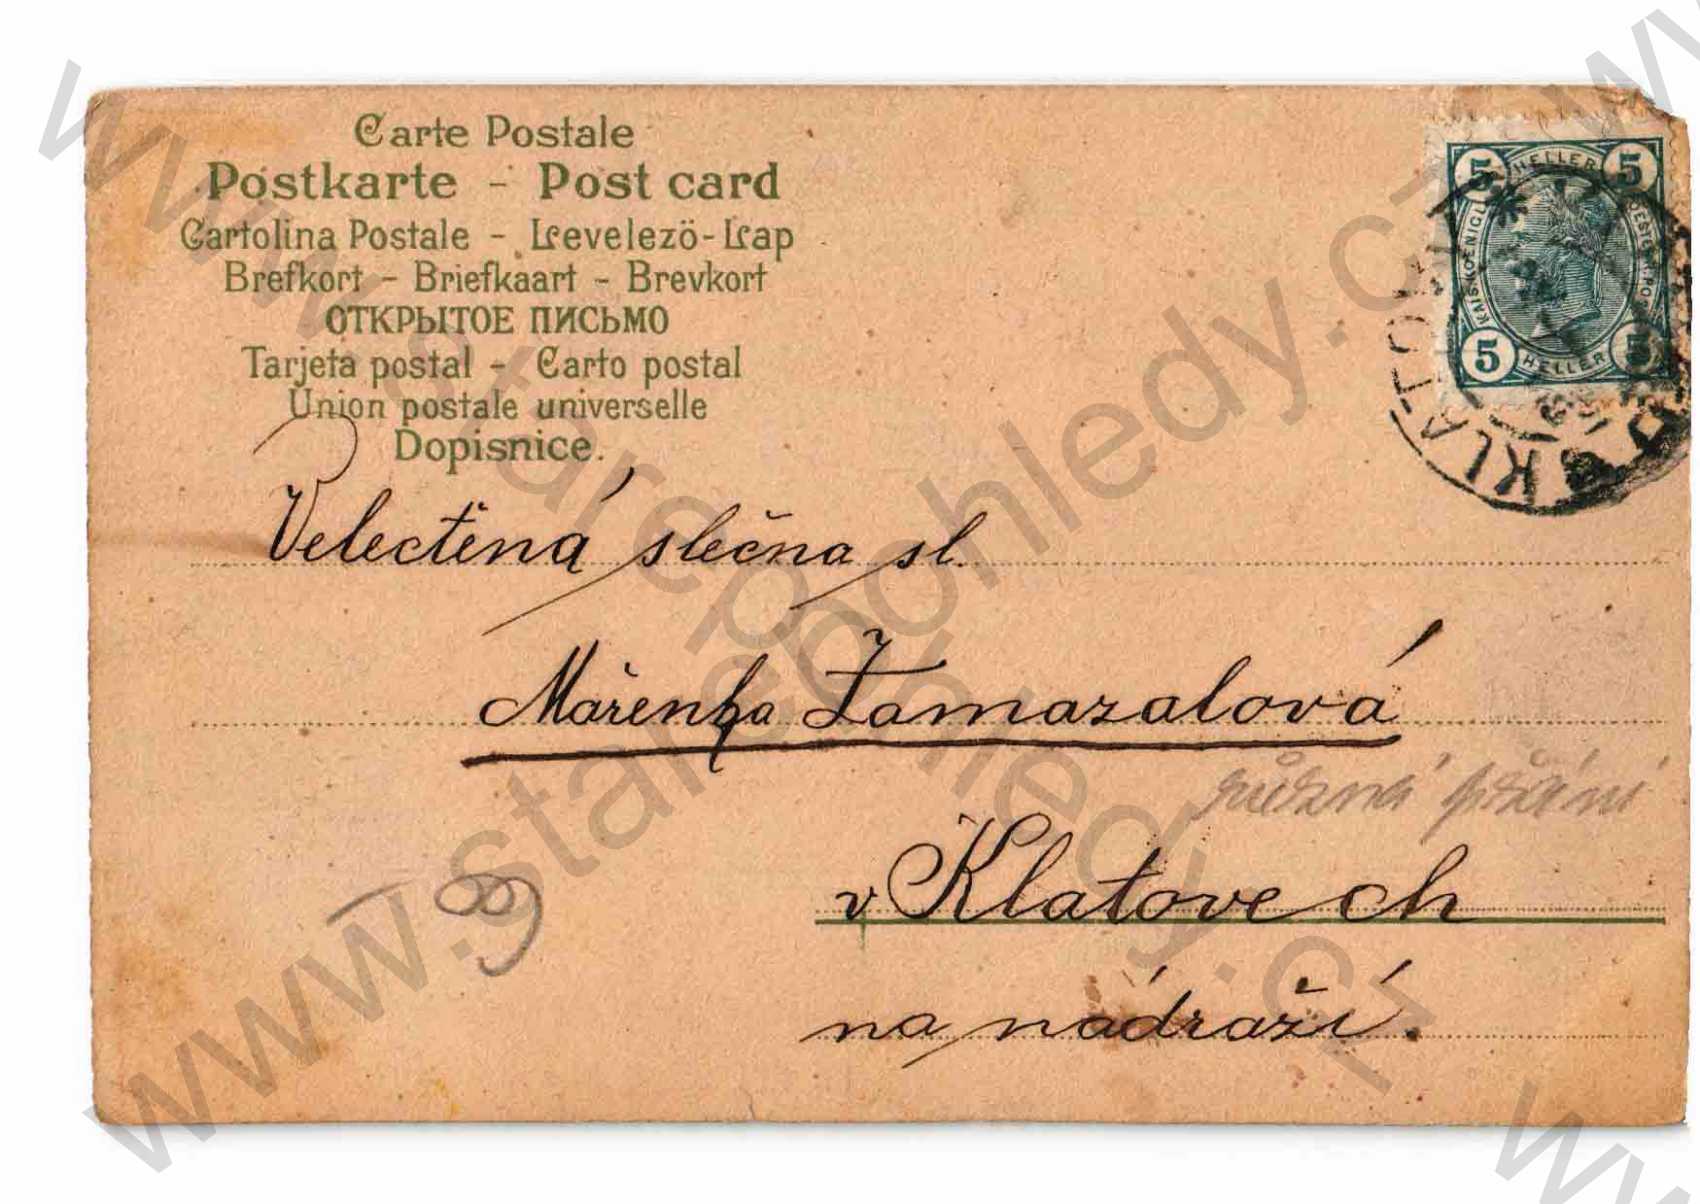 Carte Postale
Postkarte - Post card
Cartolina Postale - Levelezö-Lap
Brefkort - Briefkaart - Brevkort
ОТКРЫТОЕ ПИСЬМО
Tarjeta postal - Carto postal
Union postale universelle
Dopisnice.
5 HELLER 5
KAIS. KOENIGL. OESTERR. POST
5 HELLER 5
KLATOVY KLATTAU
Velectěná slečna sl.
Mařenka Zamazalová
různá přání
v Klatovech
na nádraží.
www.starepohledy.cz
www.starepohledy.cz